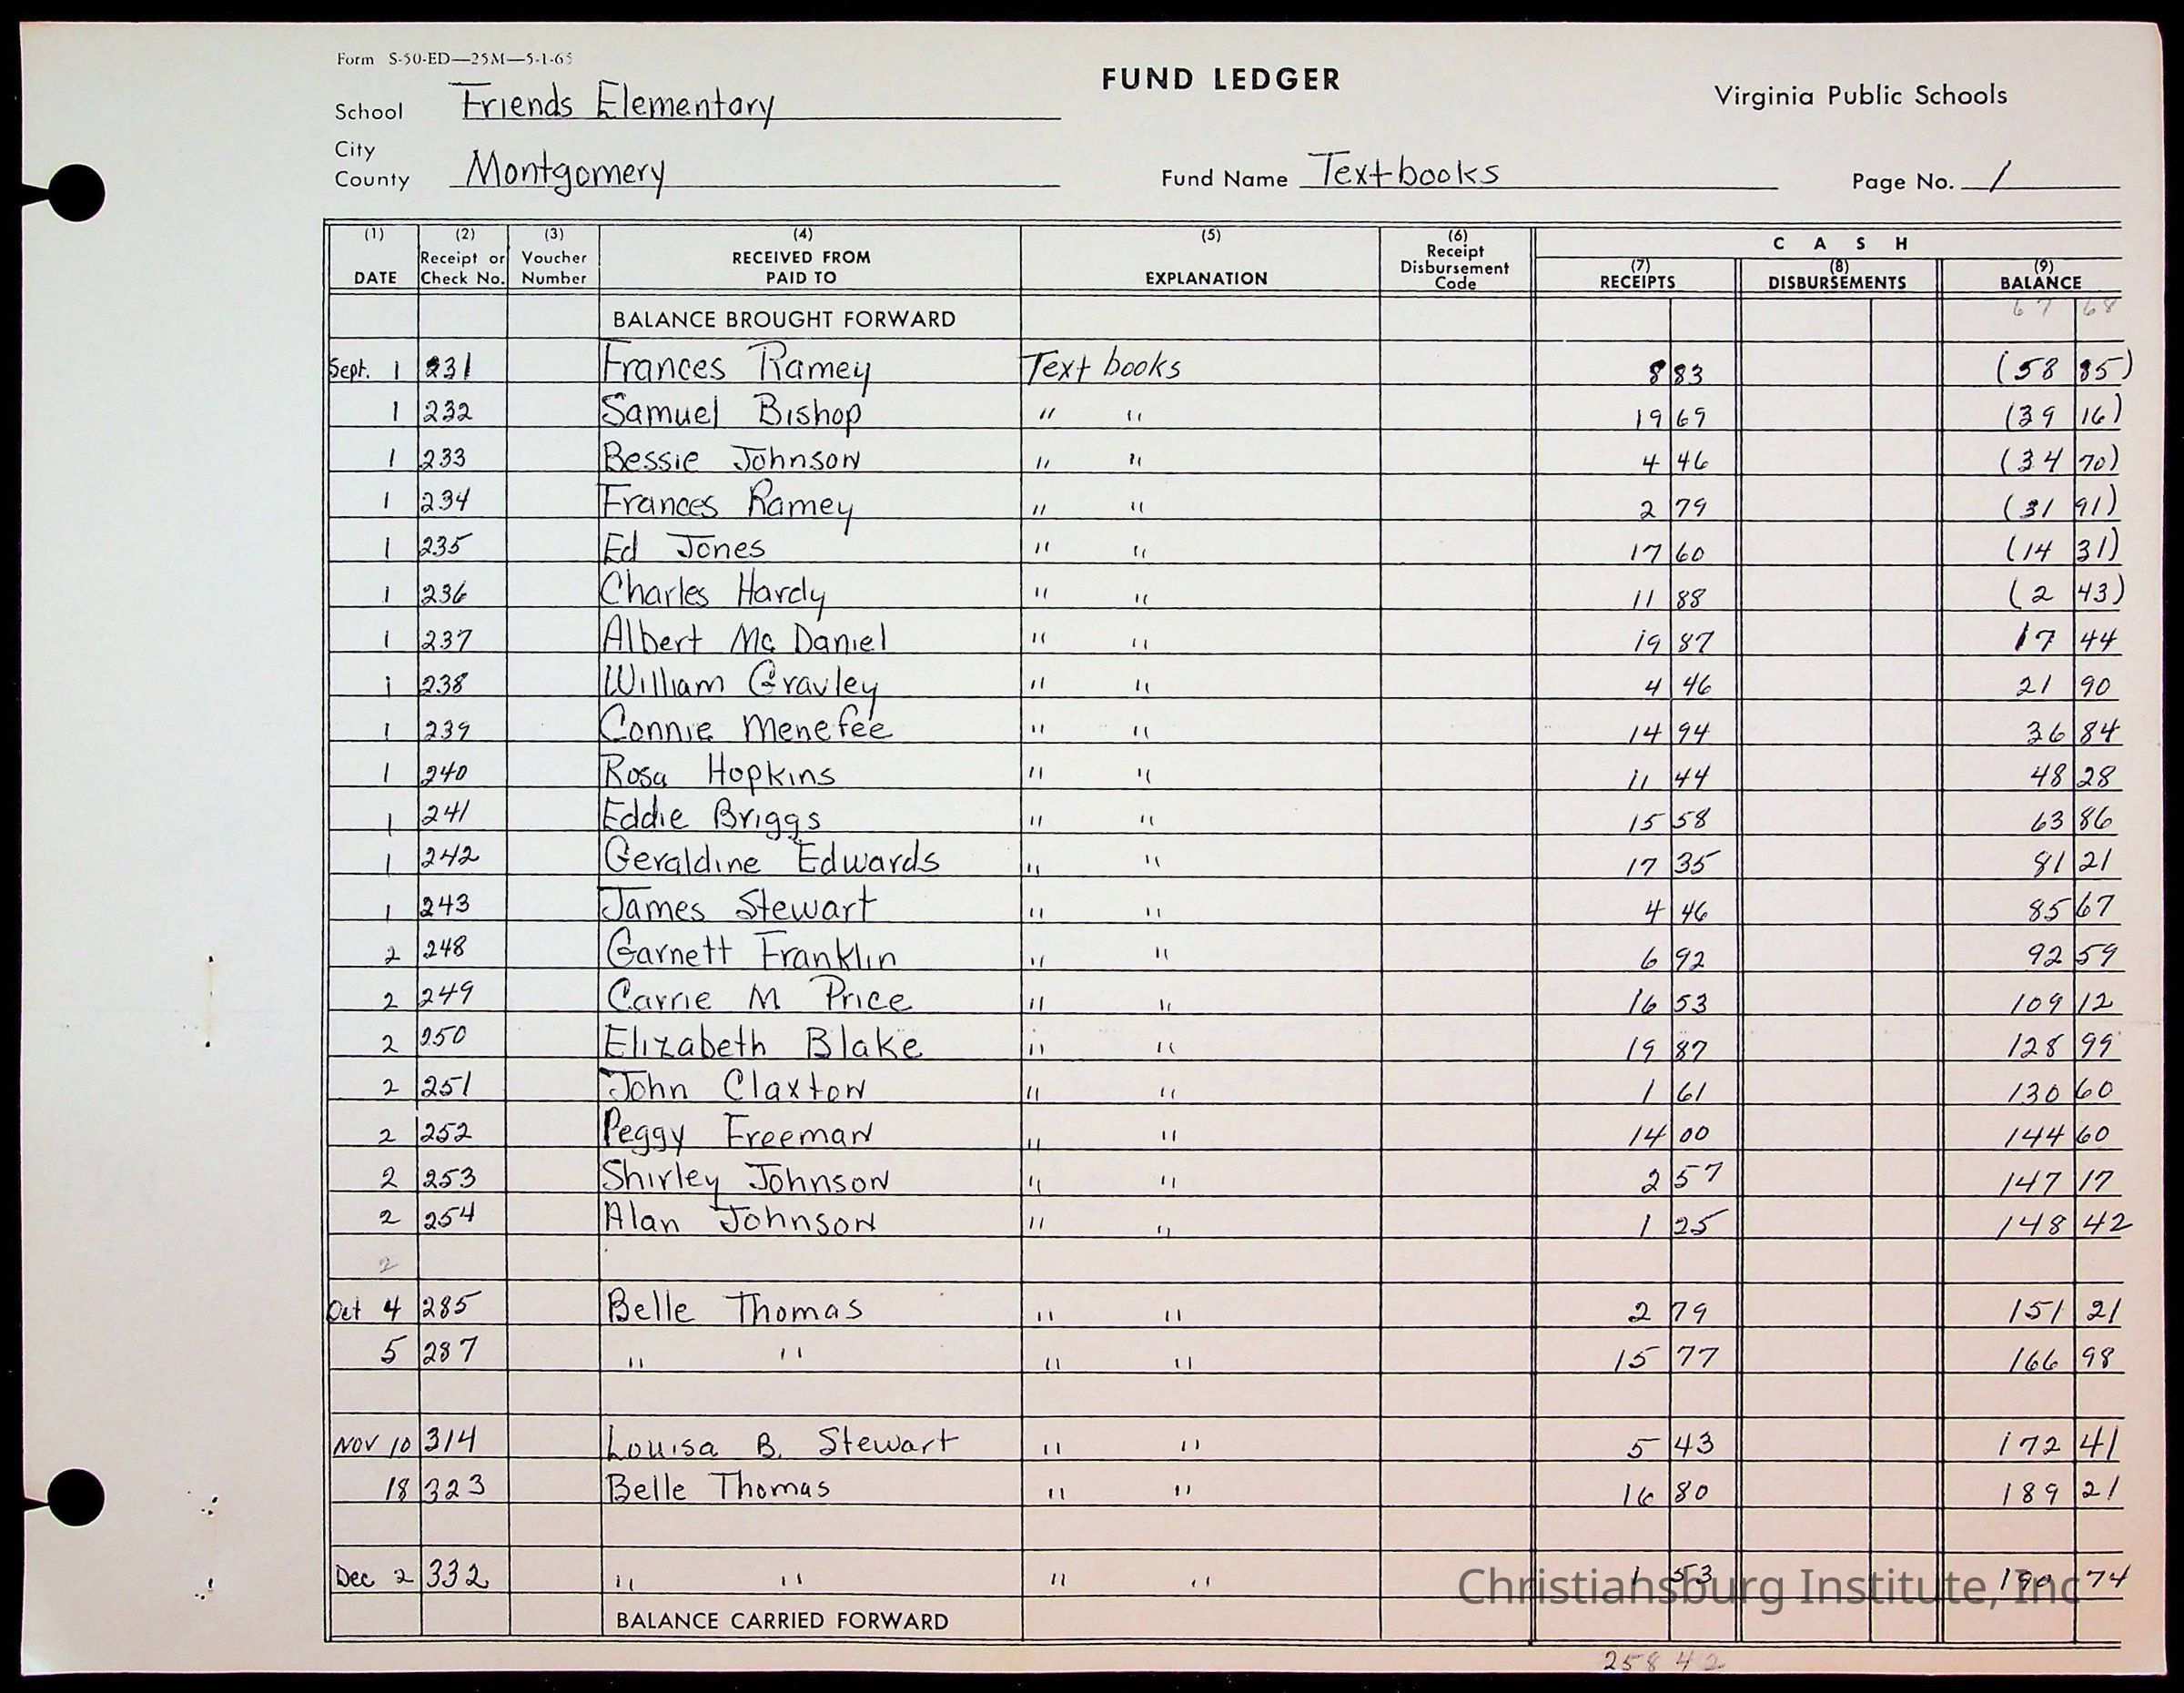 Form S-50-ED—25M—5-1-65
FUND LEDGER
Virginia Public Schools
School Friends Elementary
City
County Montgomery
Fund Name Textbooks
Page No. 1
(1) (2) (3) (4) (5) (6) C A S H
DATE Receipt or Check No. Voucher Number RECEIVED FROM PAID TO EXPLANATION Receipt Disbursement Code (7) RECEIPTS (8) DISBURSEMENTS (9) BALANCE
BALANCE BROUGHT FORWARD 67 68
Sept. 1 231 Frances Ramey Text books 8 83 (58 85)
1 232 Samuel Bishop " " 19 69 (39 16)
1 233 Bessie Johnson " " 4 46 (34 70)
1 234 Frances Ramey " " 2 79 (31 91)
1 235 Ed Jones " " 17 60 (14 31)
1 236 Charles Hardy " " 11 88 (2 43)
1 237 Albert Mc Daniel " " 19 87 17 44
1 238 William Gravley " " 4 46 21 90
1 239 Connie Menefee " " 14 94 36 84
1 240 Rosa Hopkins " " 11 44 48 28
1 241 Eddie Briggs " " 15 58 63 86
1 242 Geraldine Edwards " " 17 35 81 21
1 243 James Stewart " " 4 46 85 67
2 248 Garnett Franklin " " 6 92 92 59
2 249 Carrie M Price " " 16 53 109 12
2 250 Elizabeth Blake " " 19 87 128 99
2 251 John Claxton " " 1 61 130 60
2 252 Peggy Freeman " " 14 00 144 60
2 253 Shirley Johnson " " 2 57 147 17
2 254 Alan Johnson " " 1 25 148 42
2
Oct 4 285 Belle Thomas " " 2 79 151 21
5 287 " " " " 15 77 166 98
Nov 10 314 Louisa B. Stewart " " 5 43 172 41
18 323 Belle Thomas " " 16 80 189 21
Dec 2 332 " " " " 1 53 190 74
Christiansburg Institute, Inc
BALANCE CARRIED FORWARD
258 42